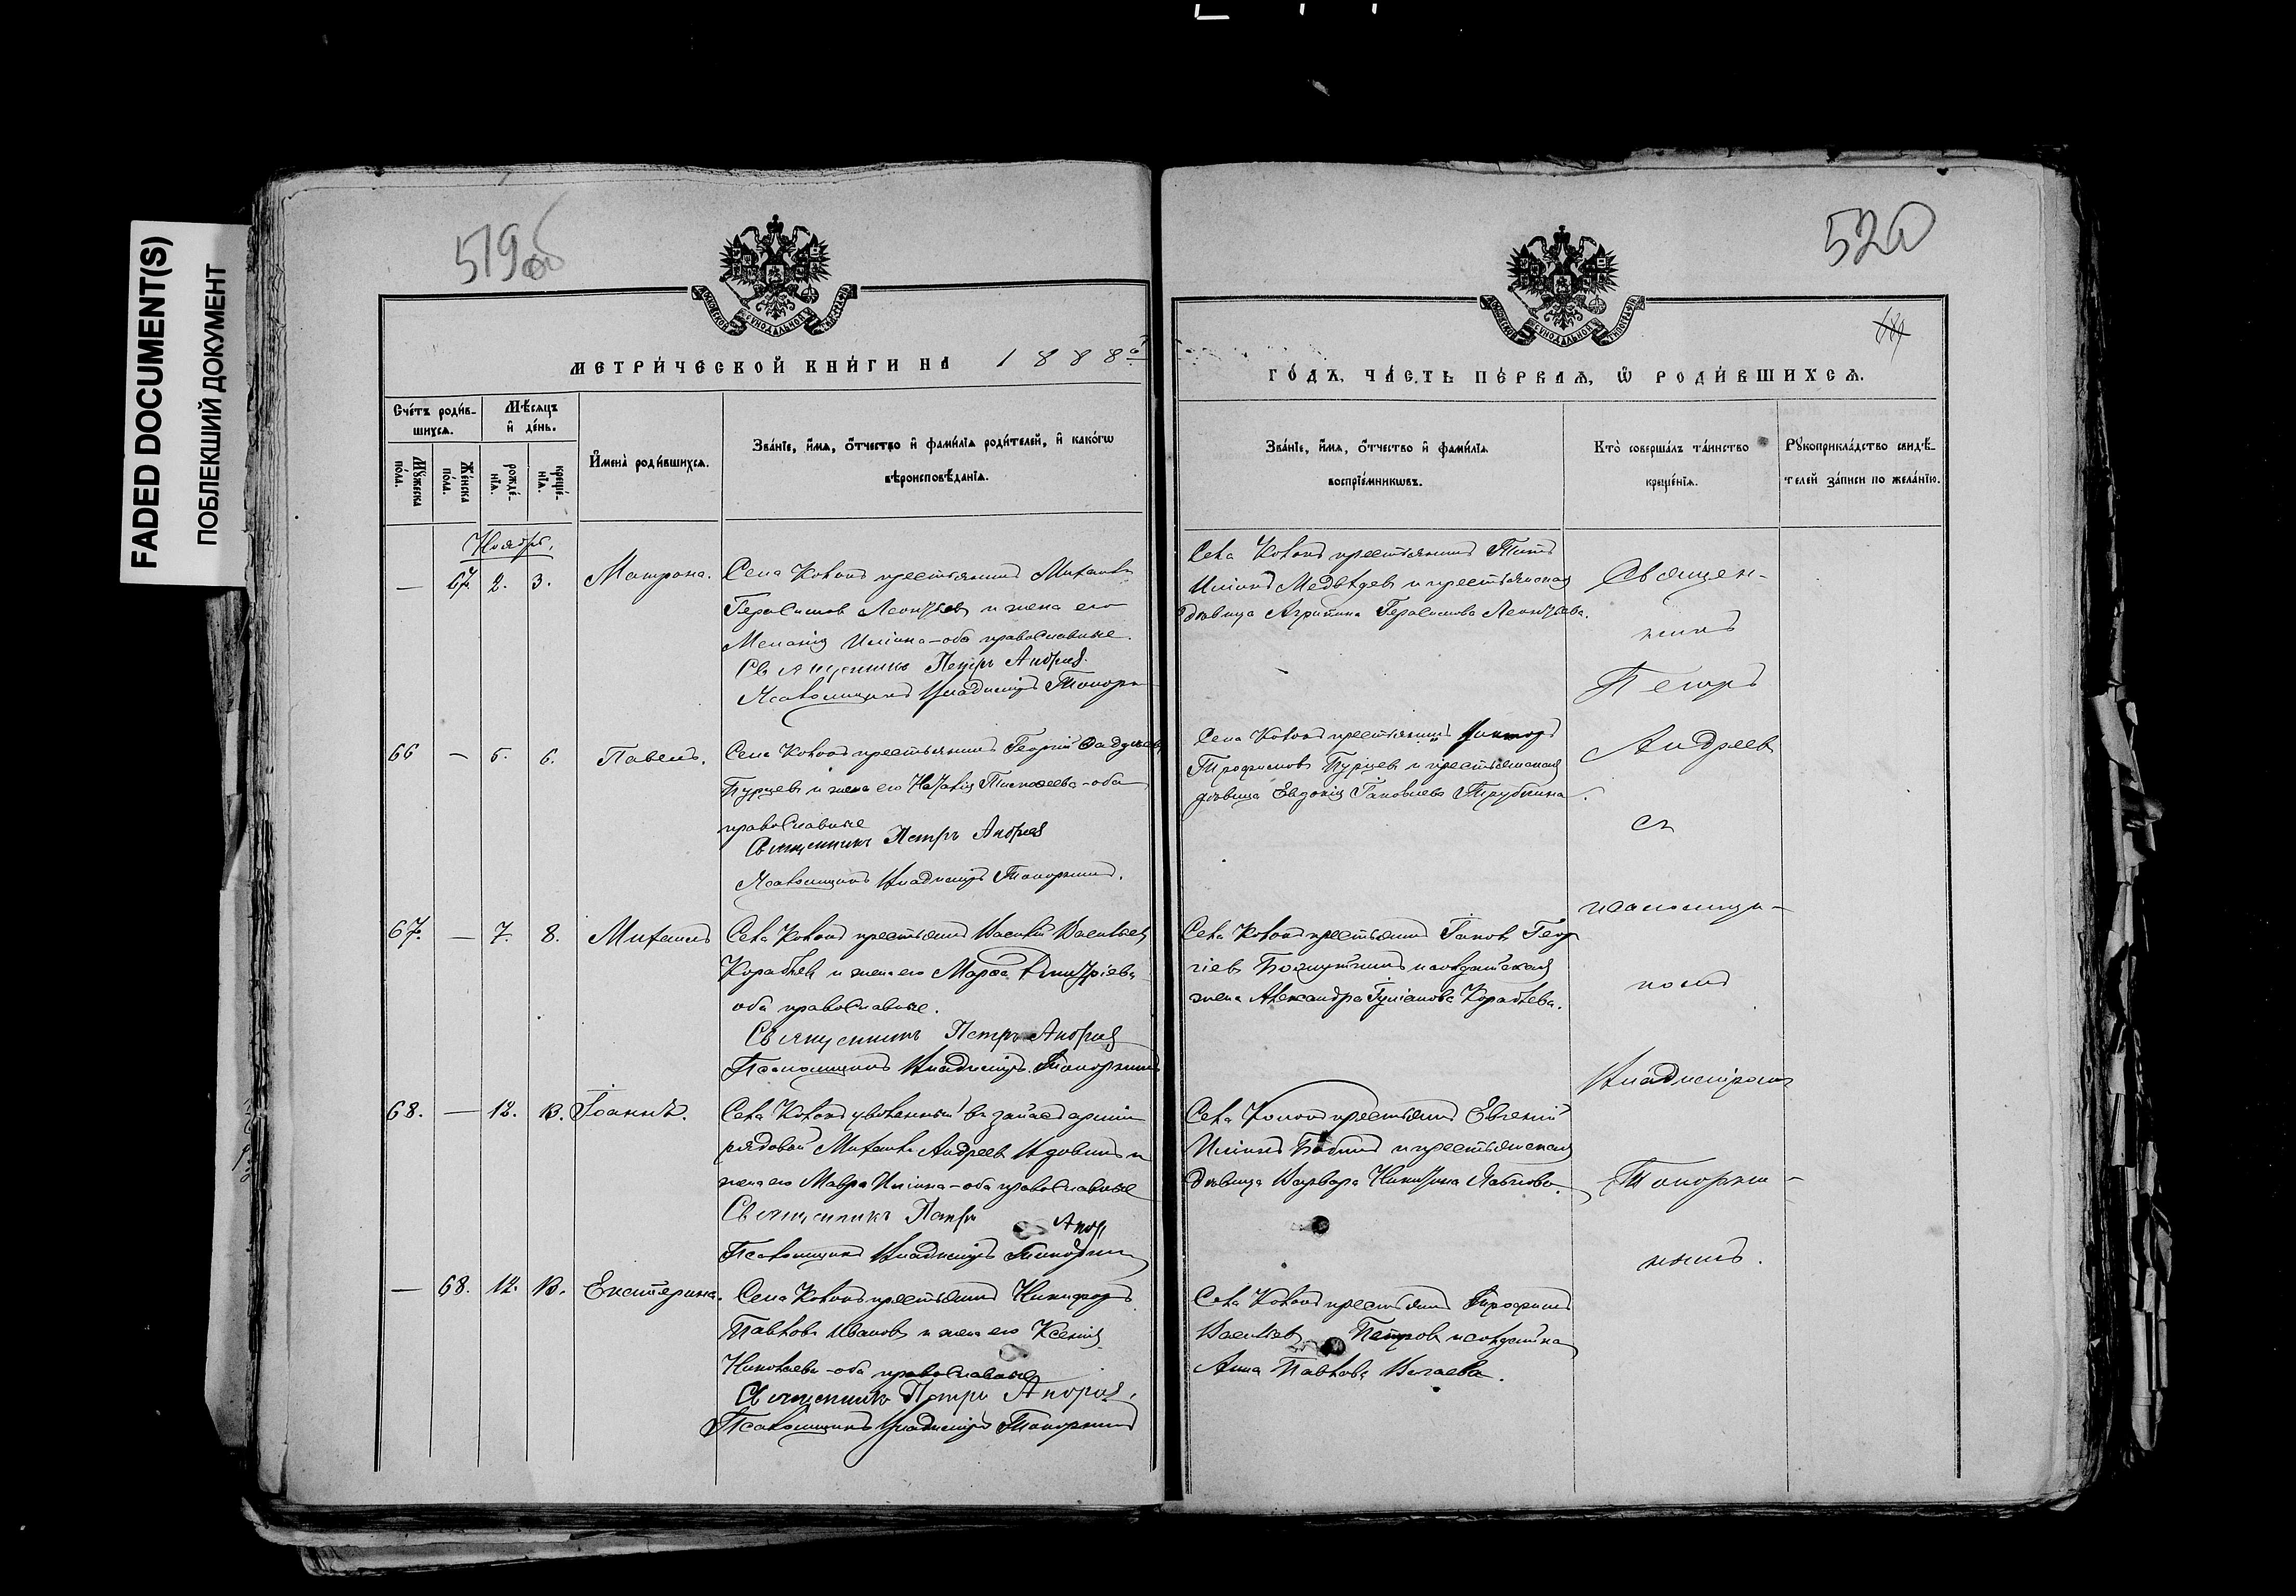 FADED DOCUMENT(S)
ПОБЛЕКШИЙ ДОКУМЕНТ
519об
520
МЕТРИ́ЧЕСКОЙ КНИ́ГИ НА 1888й
ГО́ДЪ, ЧА́СТЬ ПЕ́РВАЯ, Ѽ РОДИ́ВШИХСЯ.
Сче́тъ роди́в-
шихся.
Мѣ́сяцъ
и҆ де́нь.
Мꙋ́жеска по́ла.
Же́нска по́ла.
рожде́-
нїѧ.
креще́-
нїѧ.
И҆мена̀ роди́вшихся.
Зва́нїе, и҆́мѧ, ѻ҆́тчество и҆ фамѝлїѧ роди́телей, и҆ како́гѡ
вѣроисповѣ́данїѧ.
Зва́нїе, и҆́мѧ, ѻ҆́тчество и҆ фамѝлїѧ
воспрїе́мникѡвъ.
Кто̀ соверша́лъ та́инство
креще́нїѧ.
Рꙋкоприкла́дство свидѣ́-
телей за́писи по жела́нїю.
Ноябрь.
— 67. 2. 3. Матрона.
Села крестьянинъ Михаилъ
Герасимовъ Леонтьевъ и жена его
Меланія Ильина – оба православные.
Священникъ Петръ Андреев
Псаломщикъ Владиміръ Топорнинъ
Села крестьянинъ Титъ
Ильинъ Медвѣдевъ и крестьянская
дѣвица Агрипина Герасимова Леонтьева.
Священ-
никъ
Петръ
Андреев
съ
псаломщи-
комъ
Владиміромъ
Топорни-
нымъ.
66 — 5. 6. Павелъ.
Села крестьянинъ Георгій
Пурцевъ и жена его Наталія Тимофеева – оба
православные
Священникъ Петръ Андреев
Псаломщикъ Владиміръ Топорнинъ.
Села крестьянинъ Викторъ
Трофимовъ Пурцевъ и крестьянская
дѣвица Евдокія Іаковлева Трубкина.
67. — 7. 8. Михаилъ
Села крестьянинъ Василій Васильевъ
Кораблевъ и жена его Марѳа Дмитріева
оба православные.
Священникъ Петръ Андреев
Псаломщикъ Владиміръ Топорнинъ
Села крестьянинъ Іаковъ Геор-
гіевъ и солдатская
жена Александра Кораблева.
68. — 12. 13. Іоаннъ.
Села уволенный въ запасъ арміи
рядовой Михаилъ Андреевъ и
жена его Мавра Ильина – оба православные
Священникъ Петръ Андр
Псаломщикъ Владиміръ Топорнинъ
Села крестьянинъ Евгеній
Ильинъ Бабинъ и крестьянская
дѣвица Варвара Никитина
— 68. 12. 13. Екатерина.
Села крестьянинъ Никифоръ
Павловъ Ивановъ и жена его Ксенія
Николаева – оба православные
Священникъ Петръ Андреев.
Псаломщикъ Владиміръ Топорнинъ
Села крестьянинъ Трофимъ
Васильевъ Петровъ и солдатка
Анна Павлова